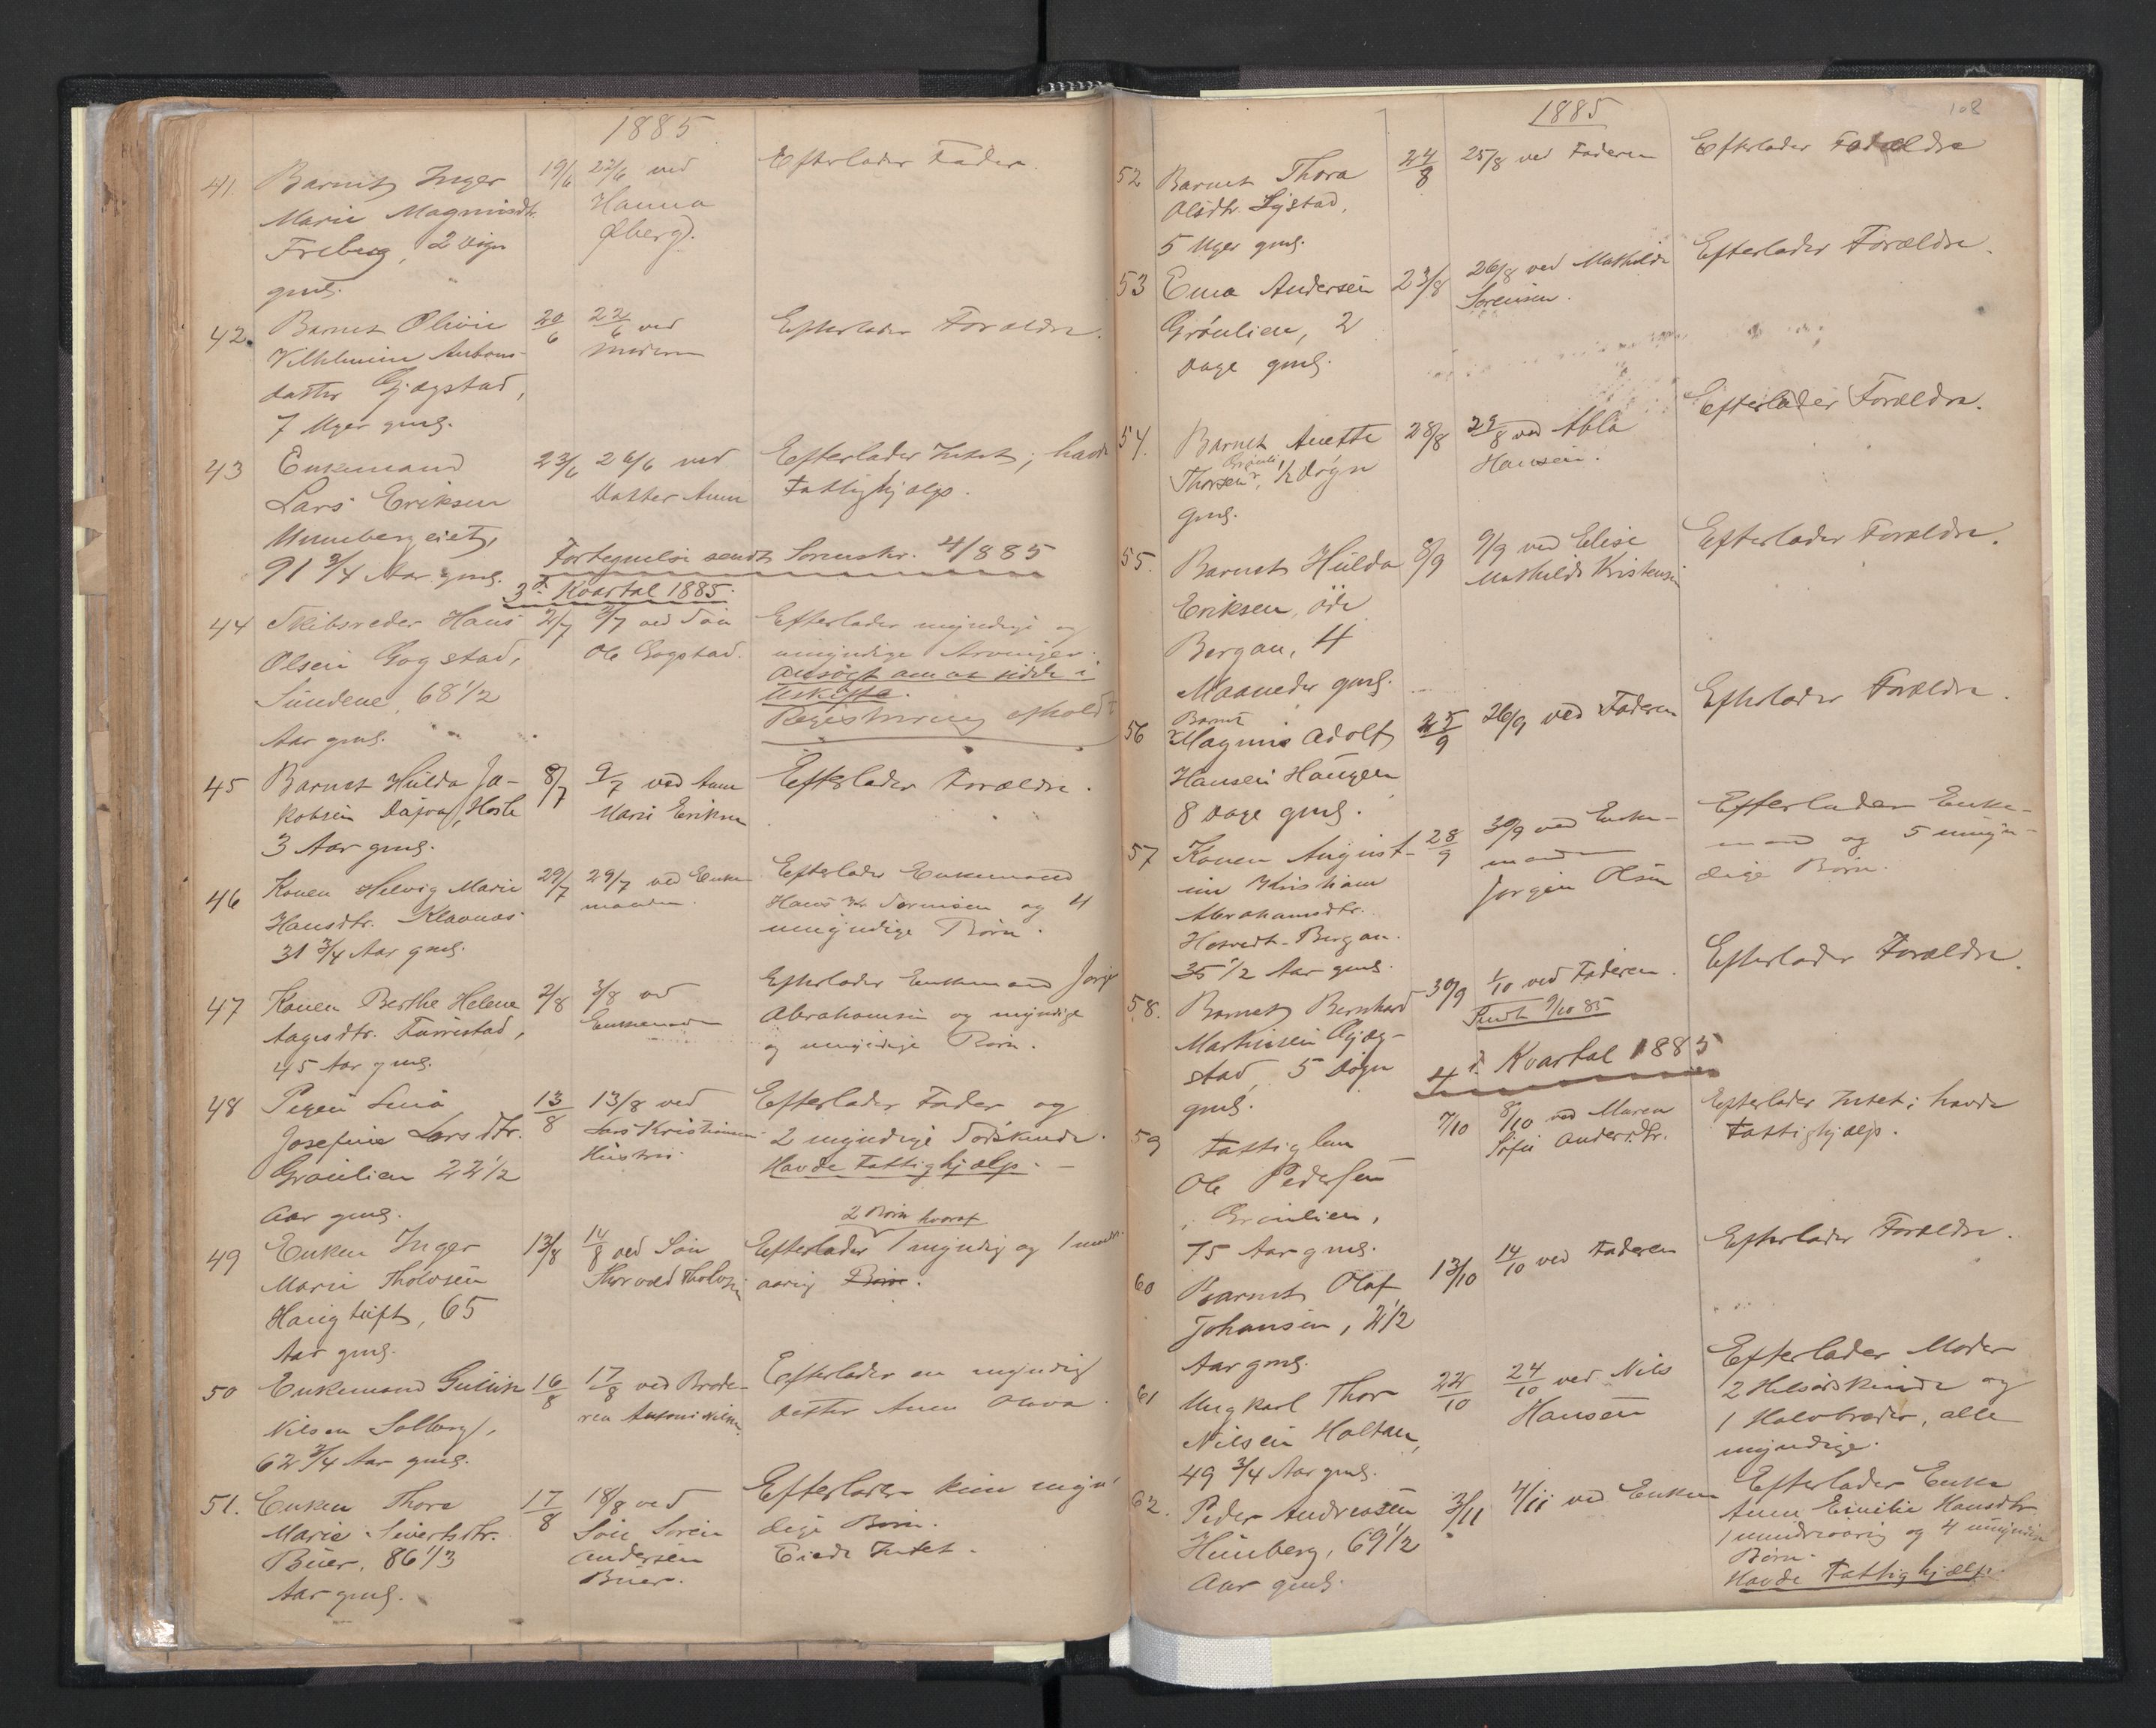 1885
41. Barnet Inger 19/6 22/6 ved Efterlader Fader.
Marie Magnusdtr. Hanna
Freberg, 2 Døgn Øberg.
gml.
42. Barnet Olivie 20/6 22/6 ved Efterlader Forældre.
Vilhelmine Antons- Moderen
datter Gjøgstad,
7 Uger gml.
43 Enkemand 23/6 26/6 ved Efterlader Intet; havde
Lars Eriksen Datter Anne Fattighjælp.
Unnebergeiet,
91 3/4 Aar gml. Fortegnelse sendt Sorenskr. 4/8 85
3d. Kvartal 1885.
44 Skibsreder Hans 2/7 3/7 ved Søn Efterlader myndige og
Olsen Gogstad, Ole Gogstad. umyndige Arvinger.
Sundene, 68 1/2 Ansøgt om at sidde i
Aar gml. Uskifte.
Registrering afholdt
45 Barnet Hulda Ja- 8/7 9/7 ved Anne Efterlader Forældre.
kobsen Marie Eriksen
3 Aar gml.
46 Konen Helvig Marie 29/7 29/7 ved Enke- Efterlader Enkemand
Hansdtr. Klavnæs manden. Hans Kr. Sørensen og 4
31 3/4 Aar gml. umyndige Børn.
47 Konen Berthe Helene 2/8 3/8 ved Efterlader Enkemand
Aagesdtr. Furustad, Enkemanden Abrahamsen og myndige
45 Aar gml. og umyndige Børn.
48 Pigen Lina 13/8 13/8 ved Efterlader Fader og
Josefine Larsdtr. Lars Kristiansens 2 myndige Sødskende.
Grønlien 22 1/2 Hustru. Havde Fattighjælp. –
Aar gml.
2 Børn hvoraf
49 Enken Inger 13/8 14/8 ved Søn Efterlader 1 myndig og 1 mindre-
Marie Tholvsen Thorvald Tholvsen aarig Børn.
Haugtuft, 65
Aar gml.
50 Enkemand Gullik 16/8 17/8 ved Brode- Efterlader en myndig
Nilsen Solberg, ren Antoni Nilsen. Datter Anne Olava.
62 3/4 Aar gml.
51. Enken Thore 17/8 18/8 ved Efterlader kun myn-
Marie Sivertsdtr. Søn Søren dige Børn.
Buer, 86 1/3 Andersen Eiede Intet.
Aar gml. Buer.
1885 108
52 Barnet Thora 24/8 25/8 ved Faderen Efterlader Forældre
Olsdtr. Lystad,
5 Uger gml.
53 Ema Andersen 23/8 26/8 ved Mathilde Efterlader Forældre.
Grønlien, 2 Sørensen.
Dage gml.
54. Barnet Anette 28/8 29/8 ved Abla Efterlader Forældre.
Grønli
Thorsen, 1/2 Døgn Hansen.
gml.
55. Barnet Hulda 8/9 9/9 ved Elise Efterlader Forældre.
Eriksen, øde Mathilde Kristensen
Bergan, 4
Maaneder gml.
56 Barnet 25/9 26/9 ved Faderen Efterlader Forældre.
Magnus Adolf
Hansen Haugen
8 Dage gml.
57 Konen August- 28/9 30/9 ved Enke- Efterlader Enke-
ine Kristiane manden mand og 5 umyn-
Abrahamsdtr. Jørgen Olsen dige Børn.
Hesvedt-Bergan.
35 1/2 Aar gml.
58. Barnet Bernhard 30/9 1/10 ved Faderen. Efterlader Forældre.
Martinsen Gjøg- Sendt 9/10 85
stad, 5 Døgn
gml. 4d. Kvartal 1885
59 Fattiglem 7/10 8/10 ved Maren Efterlader Intet; havde
Ole Pedersen Sofie Andersdtr. Fattighjælp.
i Grønlien,
75 Aar gml.
60 Barnet Olaf 13/10 14/10 ved Faderen Efterlader Forældre.
Johansen, 2 1/2
Aar gml.
61 Ungkarl Thor 22/10 24/10 ved Nils Efterlader Moder
Nilsen Holtan, Hansen 2 Helsødskende og
49 3/4 Aar gml. 1 Halvbroder, alle
myndige.
62. Peder Andreasen 3/11 4/11 ved Enken Efterlader Enke
Huneberg, 69 1/2 Anne Emilie Hansdtr.
Aar gml. 1 mindreaarig og 4 umyndige
Børn.
Havde Fattighjælp.